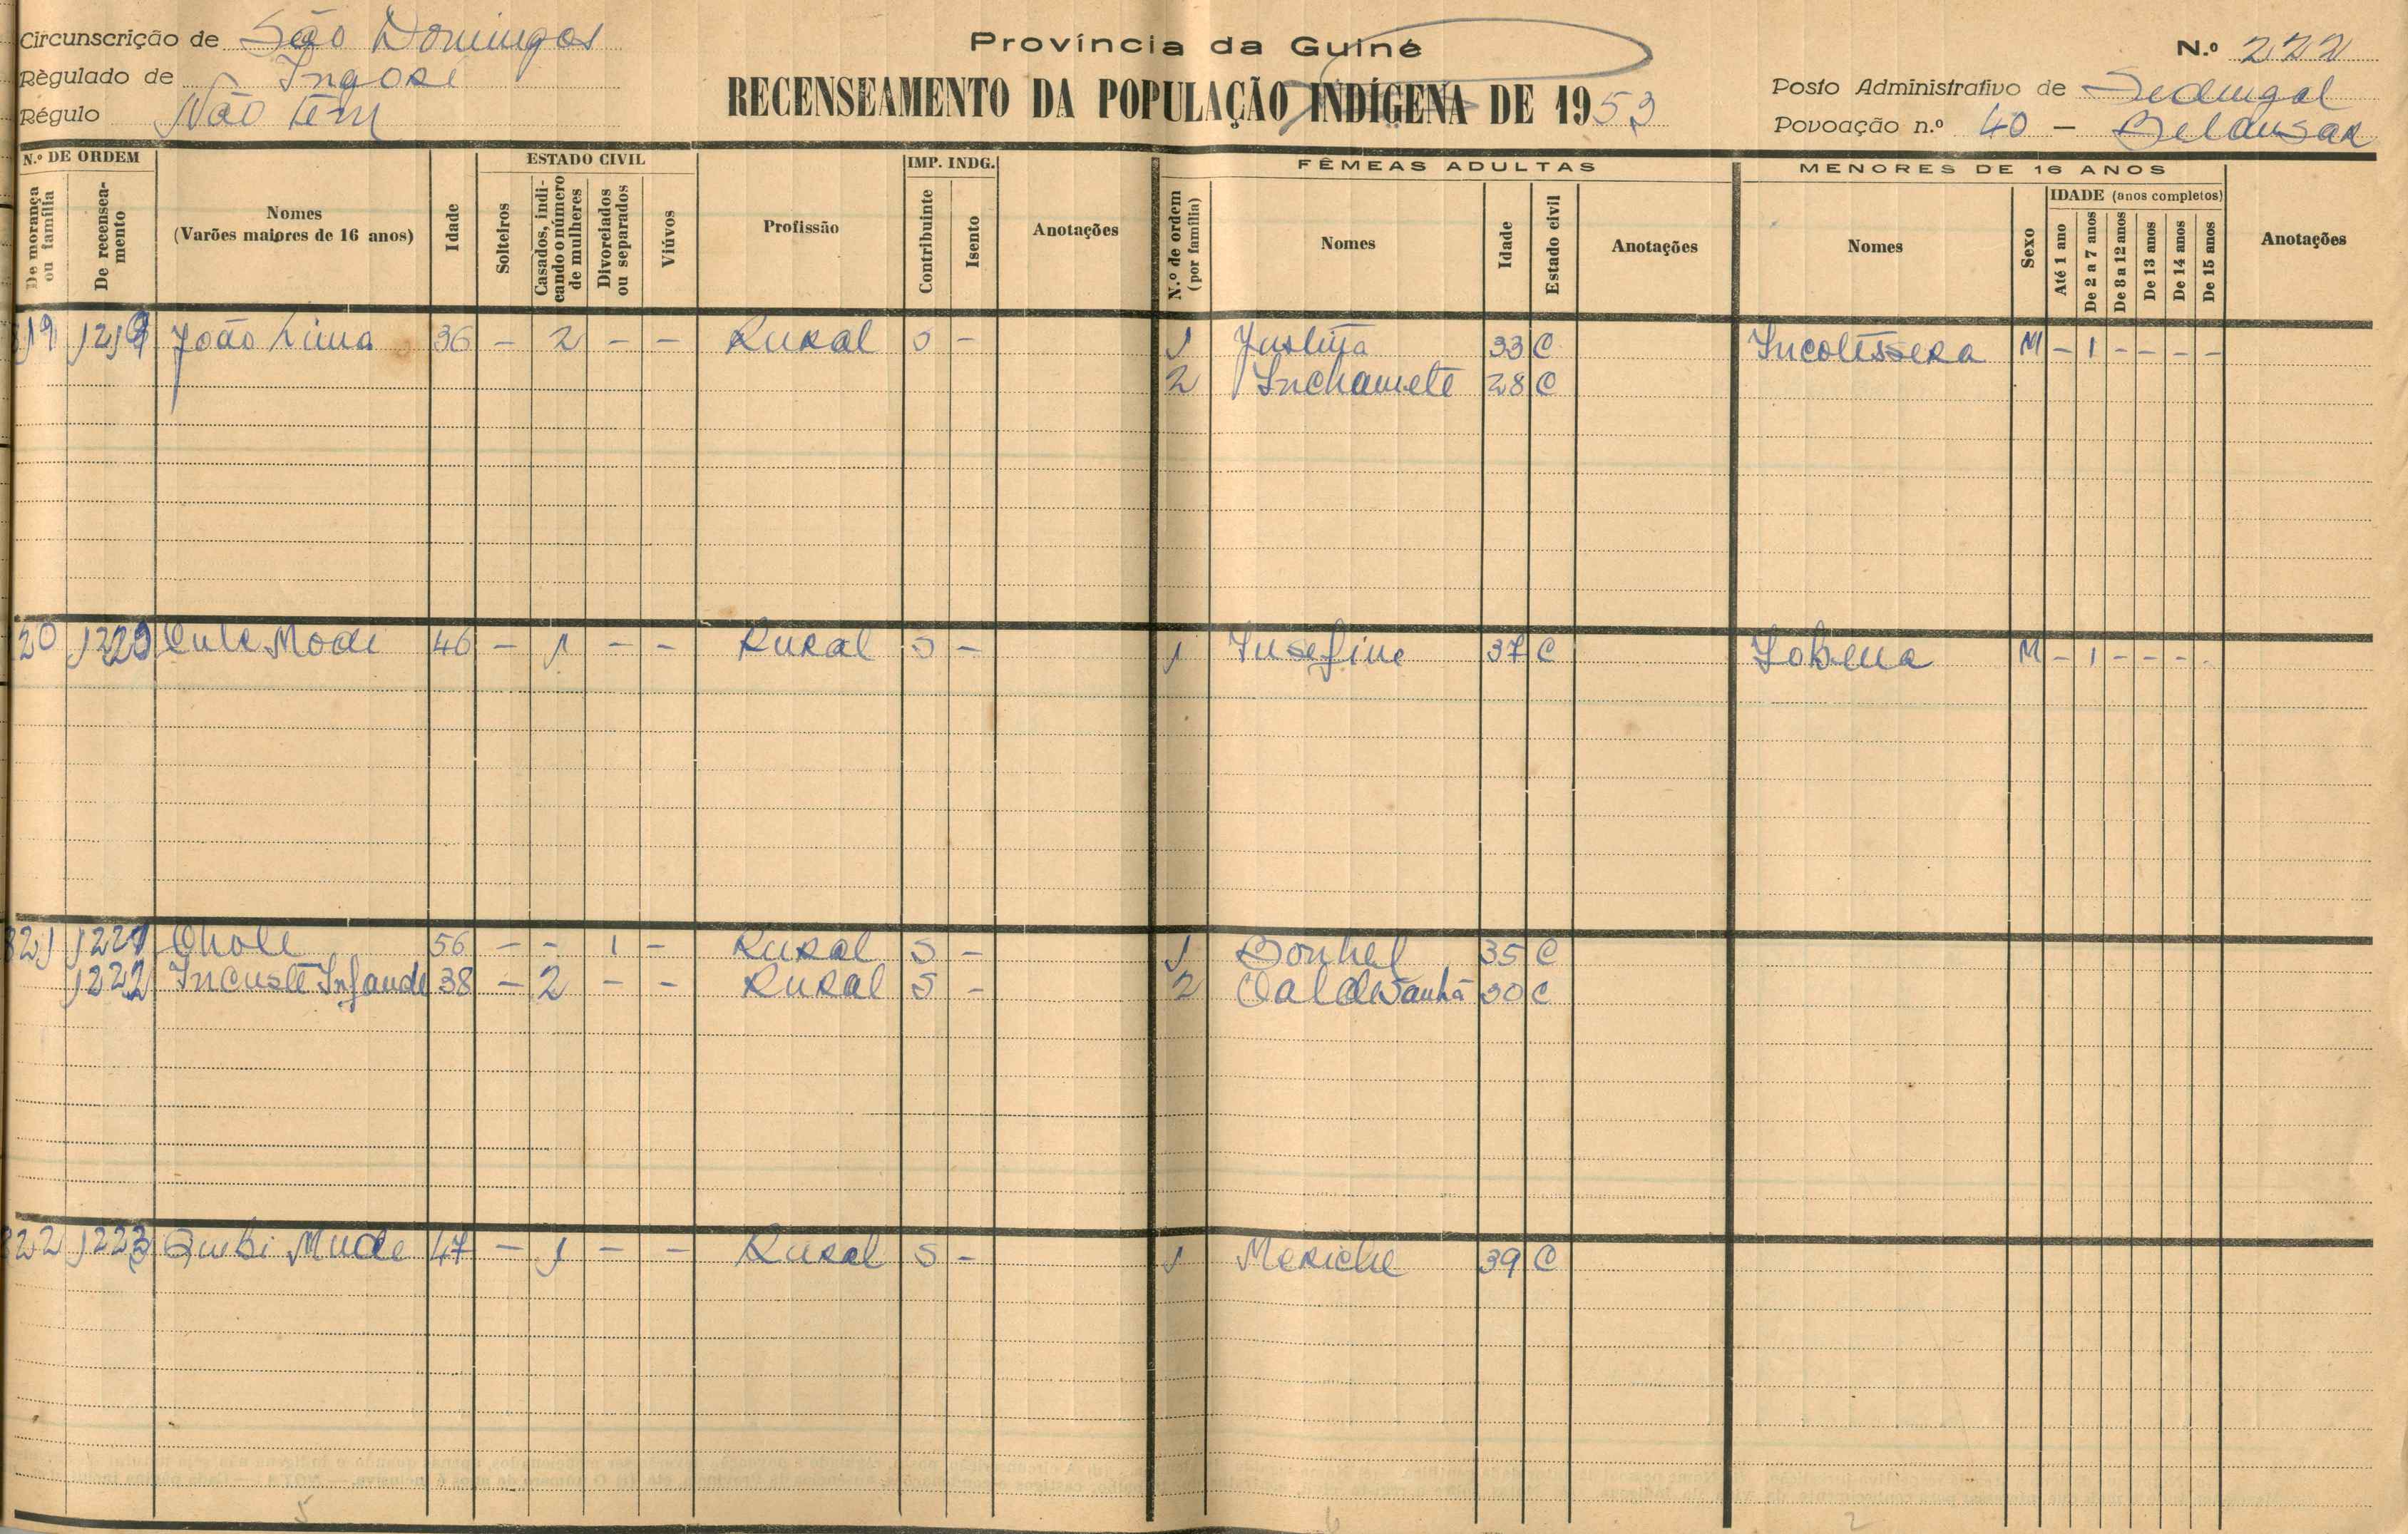 Circunscrição de São Domingos
Règulado de Ingoré
Régulo Não têm
Província da Guiné
RECENSEAMENTO DA POPULAÇÃO INDÍGENA DE 1953
N.º 222
Posto Administrativo de Sedengal
Povoação n.º 40 -
N.º DE ORDEM
De morança ou família
De recenseamento
Nomes
(Varões maiores de 16 anos)
Idade
ESTADO CIVIL
Solteiros
Casados, indicando o número de mulheres
Divorciados ou separados
Viúvos
Profissão
IMP. INDG.
Contribuinte
Isento
Anotações
FÊMEAS ADULTAS
N.º de ordem (por família)
Nomes
Idade
Estado civil
Anotações
MENORES DE 16 ANOS
Nomes
Sexo
IDADE (anos completos)
Até 1 ano
De 2 a 7 anos
De 8 a 12 anos
De 13 anos
De 14 anos
De 15 anos
Anotações
19 1219 João Lima 36 - 2 - - Rural S - 1 Justina 33 C Incolissera M - 1 - - - -
2 Inchamete 28 C
20 1220 Modi 46 - 1 - - Rural S - 1 Jusefine 37 C M - 1 - - - -
821 1221 56 - - 1 - Rural S - 1 Bonhel 35 C
1222 Incuste Infande 38 - 2 - - Rural S - 2 30 C
822 1223 Quibi Mude 47 - 1 - - Rural S - 1 Meriche 39 C
5 6 2